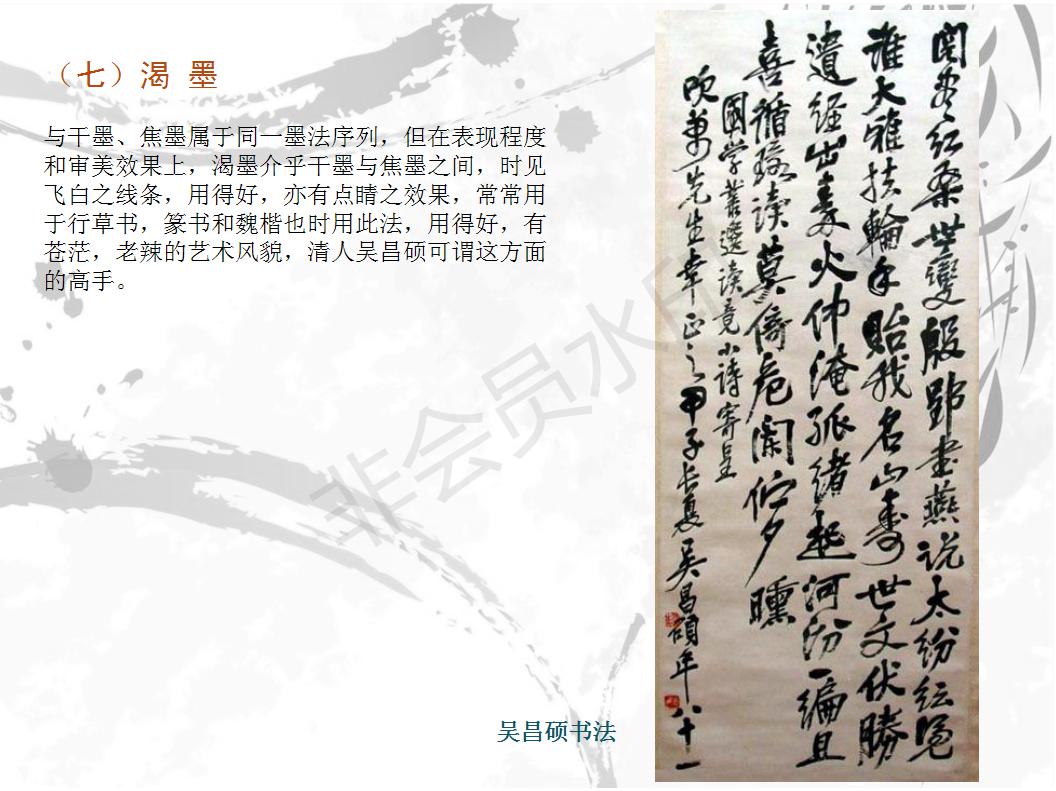 （七）渴 墨
与干墨、焦墨属于同一墨法序列，但在表现程度
和审美效果上，渴墨介乎干墨与焦墨之间，时见
飞白之线条，用得好，亦有点睛之效果，常常用
于行草书，篆书和魏楷也时用此法，用得好，有
苍茫，老辣的艺术风貌，清人吴昌硕可谓这方面
的高手。
非会员水印
世變殷 書燕说太纷纭
誰大雅扶輪手貽我名山壽世文伏勝
遺经出秦火仲淹孤绪起河汾一编且
喜循環读莫倚危阑伫夕曛
國学叢選读竟小诗寄呈
吹萬先生幸正之甲子长夏吴昌碩年八十一
吴昌硕书法